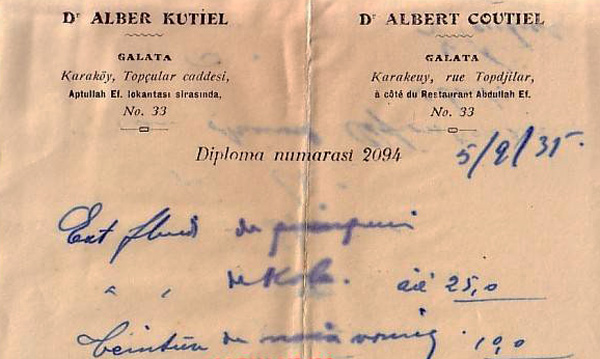 Dr ALBER KUTİEL
GALATA
Karaköy, Topçular caddesi,
Aptullah Ef. lokantası sırasında,
No. 33
Dr ALBERT COUTIEL
GALATA
Karakeuy, rue Topdjilar,
à côté du Restaurant Abdullah Ef.
No. 33
Diploma numarası 2094
5/9/35.
Ext fluid de
" " de Kola. āā 25,0
Teinture de noix vomiq 10,0